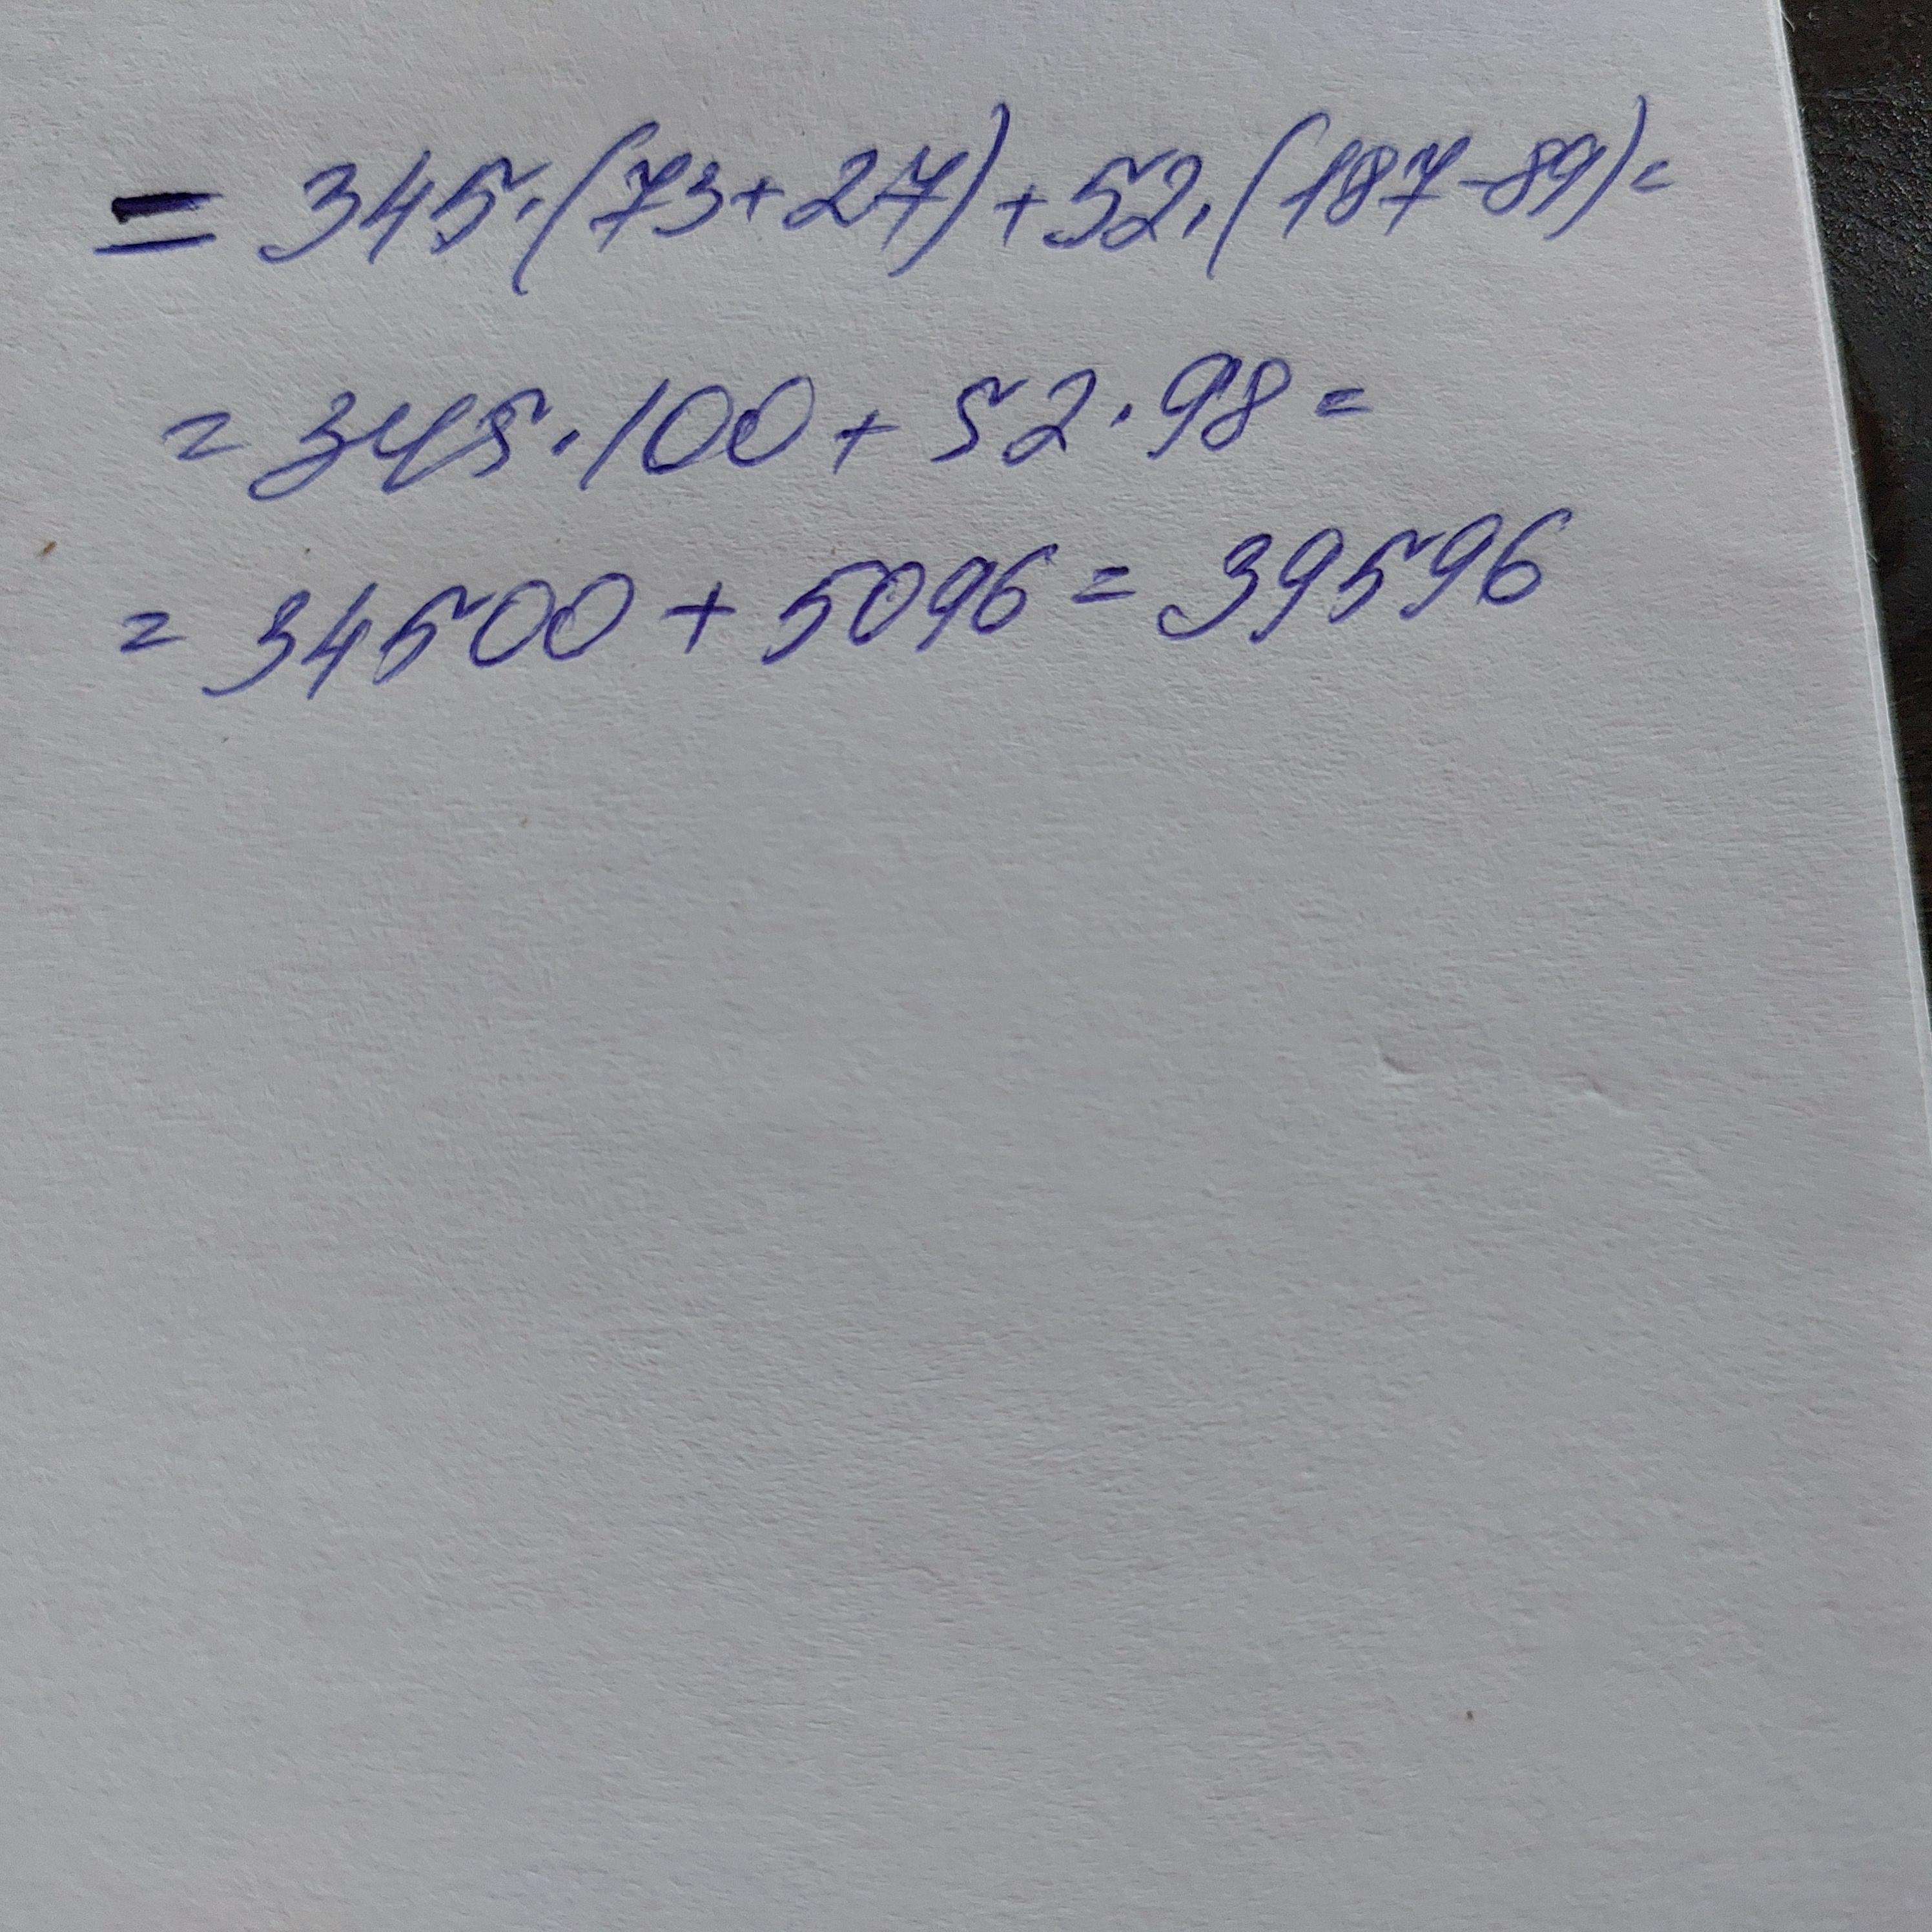 = 345·(73+27)+52·(187-89)=
= 345·100 + 52·98 =
= 34500 + 5096 = 39596